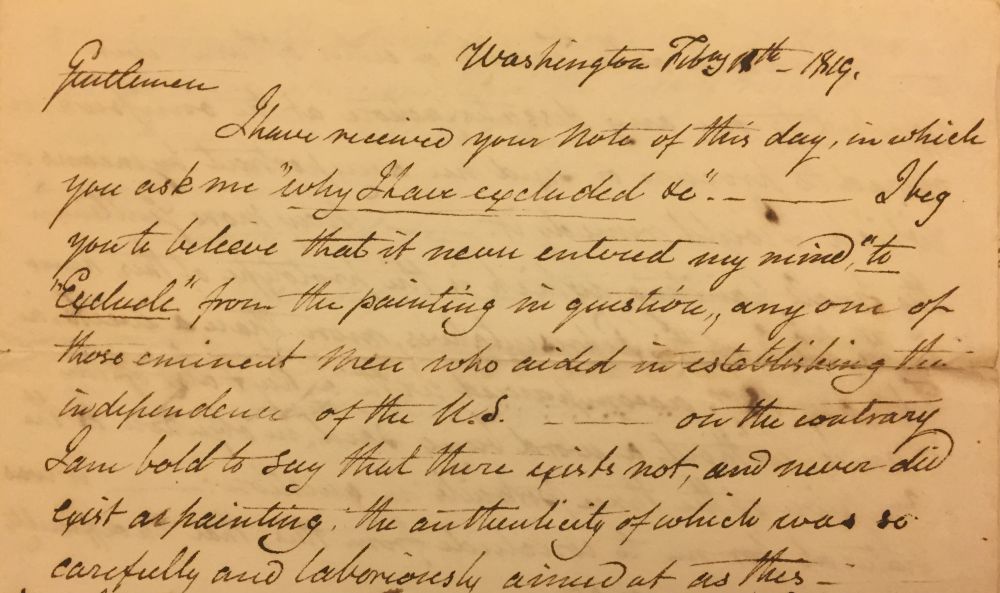 Washington Feby 11th - 1819.
Gentlemen
I have received your Note of this day, in which
you ask me "why I have excluded &c". - —— I beg
you to beleive that it never entered my mind, "to
"Exclude" from the painting in question, any one of
those eminent Men who aided in establishing the
independence of the U.S. - —— on the contrary
I am bold to say that there exists not, and never did
exist a painting, the authenticity of which was so
carefully and laboriously aimed at as this -